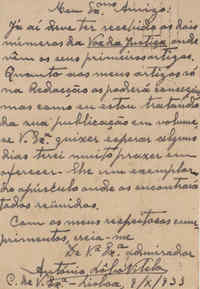 Meu Ex.mo Amigo:
Já aí deve ter recebido os dois
números da Voz da Justiça onde
vêm os seus primeiros artigos.
Quanto aos meus artigos só
na Redacção os poderá conseguir
mas como eu estou tratando
da sua publicação em volume,
se V. Ex.a quizer esperar alguns
dias terei muito prazer em
oferecer-lhe um exemplar
do opúsculo onde os encontrará
todos reünidos.
Com os meus respeitosos cum-
primentos, creia-me
De V.a Ex.a admirador
António Vilela
C. de V. Ex.a - Lisboa, 8/X/933